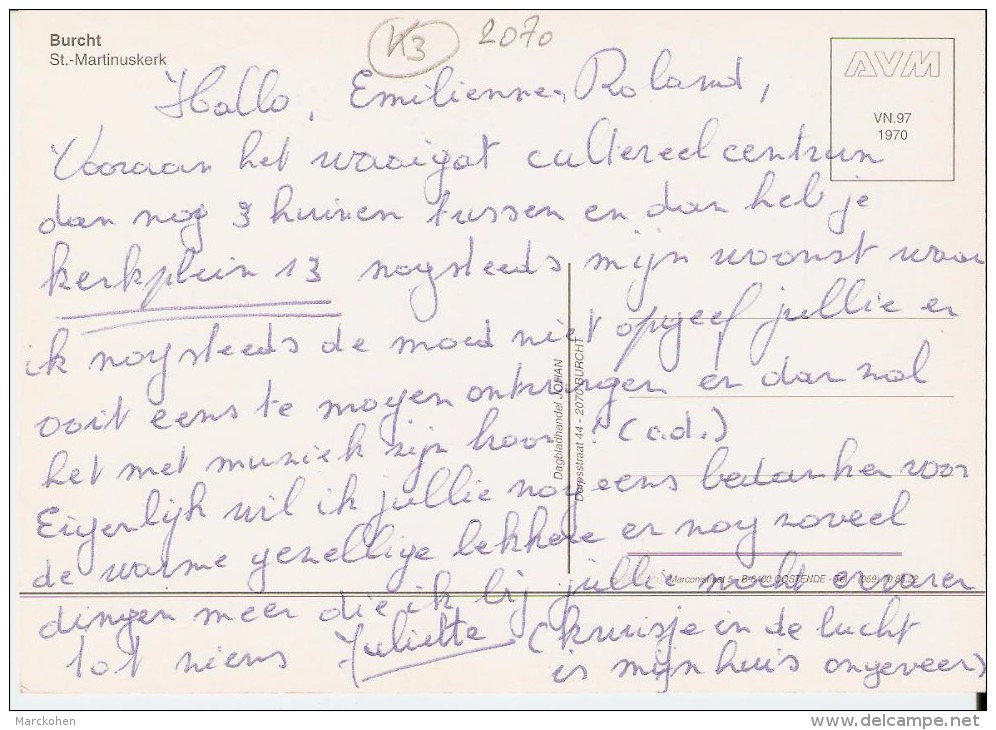 Burcht
St.-Martinuskerk
K3 2070
AVM
VN.97
1970
Hallo, Emilienne, Roland,
Vooraan het waaigat cultereel centrum
dan nog 3 huizen tussen en dan heb je
kerkplein 13 nogsteeds mijn woonst waar
ik nogsteeds de moed niet opgeef jullie er
ooit eens te mogen ontvangen er dan zal
het met muziek zijn hoor! (c.d.)
Eigenlijk wil ik jullie nog eens bedanken voor
de warme gezellige lekkere en nog zoveel
dingen meer die ik bij jullie mocht ervaren
Tot niews Juliette (kruisje in de lucht
is mijn huis ongeveer)
Dagbladhandel JOHAN
Dorpsstraat 44 - 2070 BURCHT
Marconistraat 5 - B-8400 OOSTENDE - Tel. (059)
Marckohen
VN.97 www.delcampe.net